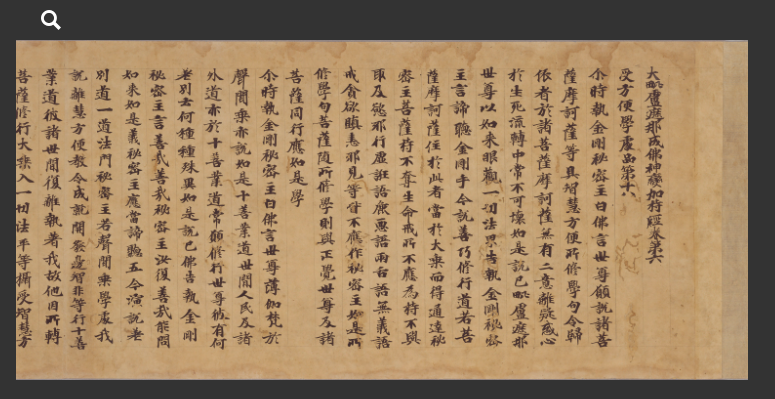 大毗盧遮那成佛神變加持經卷第六
受方便學處品第十八
尒時執金剛秘密主白佛言世尊願說諸菩
薩摩訶薩等具智慧方便所修學句令歸
依者於諸菩薩摩訶薩無有二意離疑惑心
於生死流轉中常不可壞如是說已毗盧遮那
世尊以如来眼觀一切法界告執金剛秘密
主言諦聽金剛手今說善巧修行道若菩
薩摩訶薩住於此者當於大乘而得通達秘
密主菩薩持不奪生命戒所不應為持不與
取及欲邪行虛誑語麁惡語兩舌語無義語
戒貪欲瞋恚邪見等皆不應作秘密主如是所
修學句菩薩隨所修學則與正覺世尊及諸
菩薩同行應如是學
尒時執金剛秘密主白佛言世尊薄伽梵於
聲聞乘亦說如是十善業道世間人民及諸
外道亦於十善業道常願修行世尊彼有何
差別云何種種殊異如是說已佛告執金剛
秘密主言善哉善哉秘密主汝復善哉能問
如来如是義秘密主應當諦聽吾今演說差
別道一道法門秘密主若聲聞乘學處我
說離慧方便教令成就開發邊智非等行十善
業道彼諸世間復離執著我故他因所轉
菩薩修行大乘入一切法平等攝受智慧方